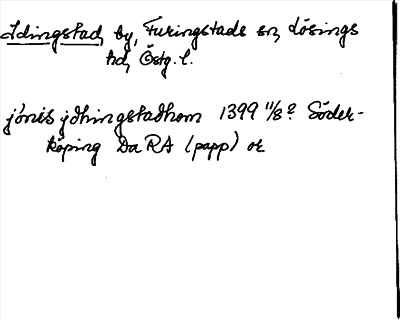 Idingstad, by, Furingstads sn, Lösings
hd, Östg. l.
jónis jdhingstadhom 1399 11/8? Söder-
köping Da RA (papp) or